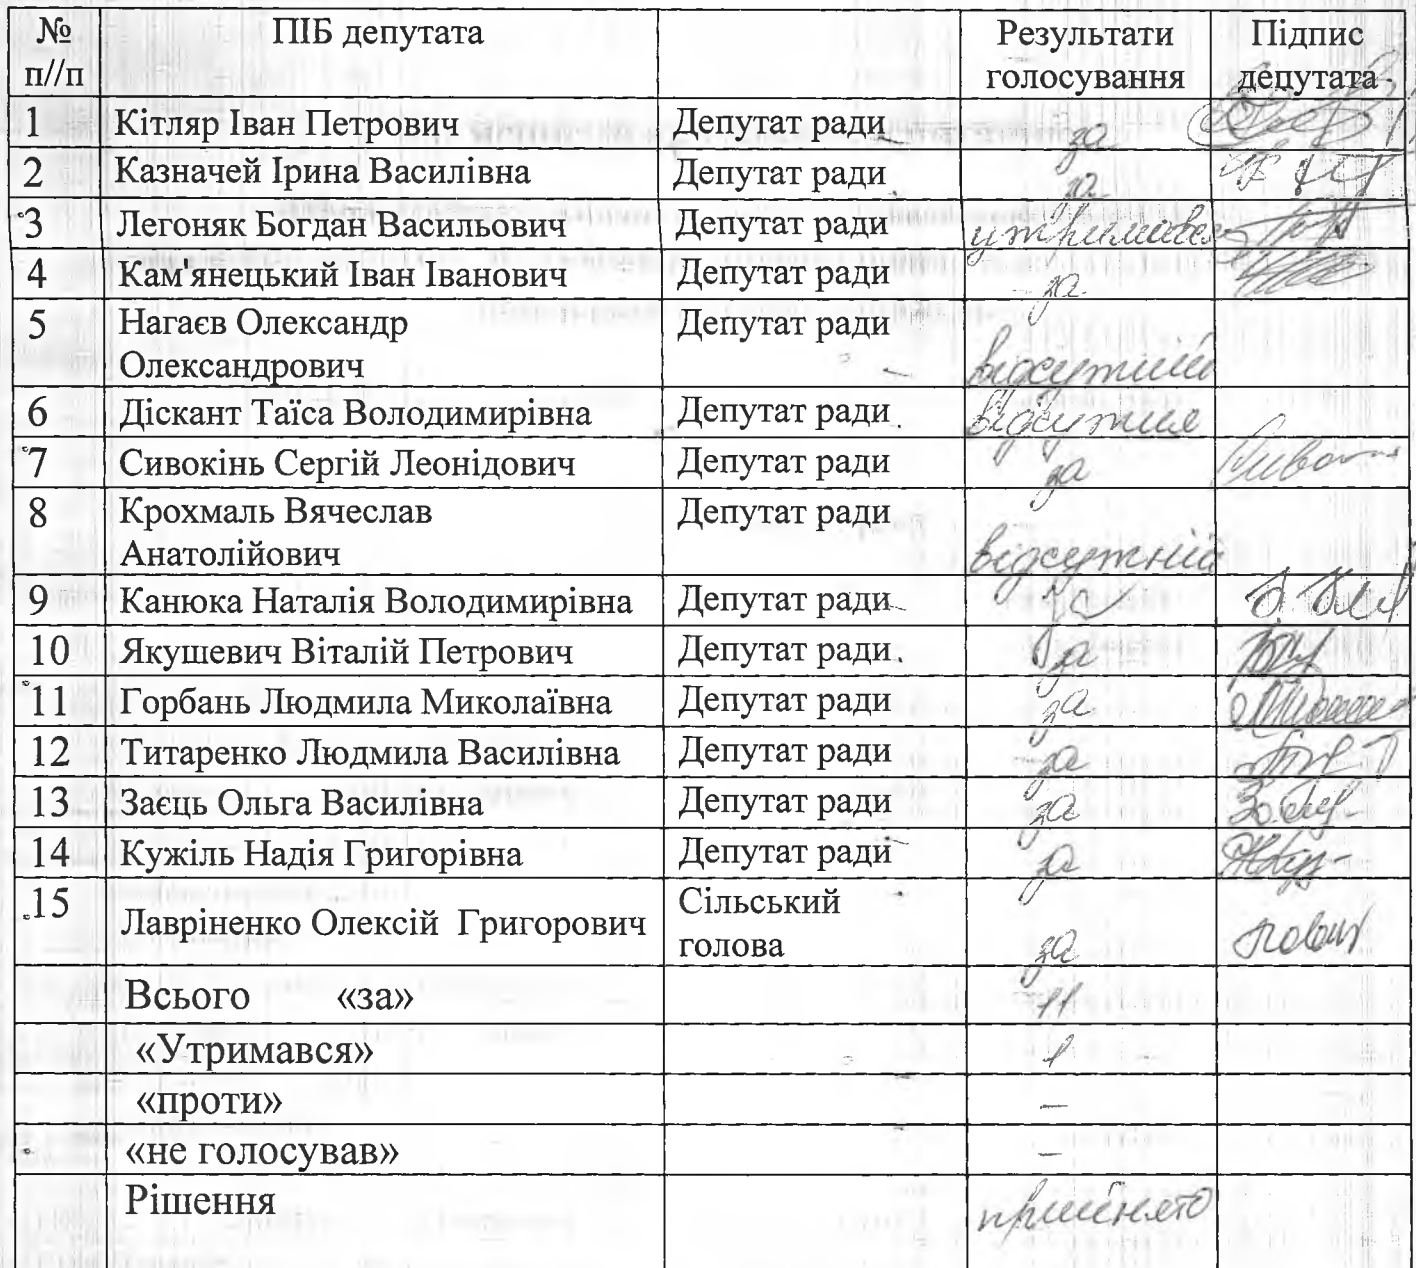 № ПІБ депутата Результати Підпис
п//п голосування депутата
1 Кітляр Іван Петрович Депутат ради за
2 Казначей Ірина Василівна Депутат ради за
3 Легоняк Богдан Васильович Депутат ради утримався
4 Кам'янецький Іван Іванович Депутат ради за
5 Нагаєв Олександр Депутат ради
Олександрович відсутній
6 Діскант Таїса Володимирівна Депутат ради відсутня
7 Сивокінь Сергій Леонідович Депутат ради за
8 Крохмаль Вячеслав Депутат ради
Анатолійович відсутній
9 Канюка Наталія Володимирівна Депутат ради за
10 Якушевич Віталій Петрович Депутат ради за
11 Горбань Людмила Миколаївна Депутат ради за
12 Титаренко Людмила Василівна Депутат ради за
13 Заєць Ольга Василівна Депутат ради за
14 Кужіль Надія Григорівна Депутат ради за
15 Лавріненко Олексій Григорович Сільський
голова за
Всього «за» 11
«Утримався» 1
«проти» –
«не голосував» –
Рішення прийнято